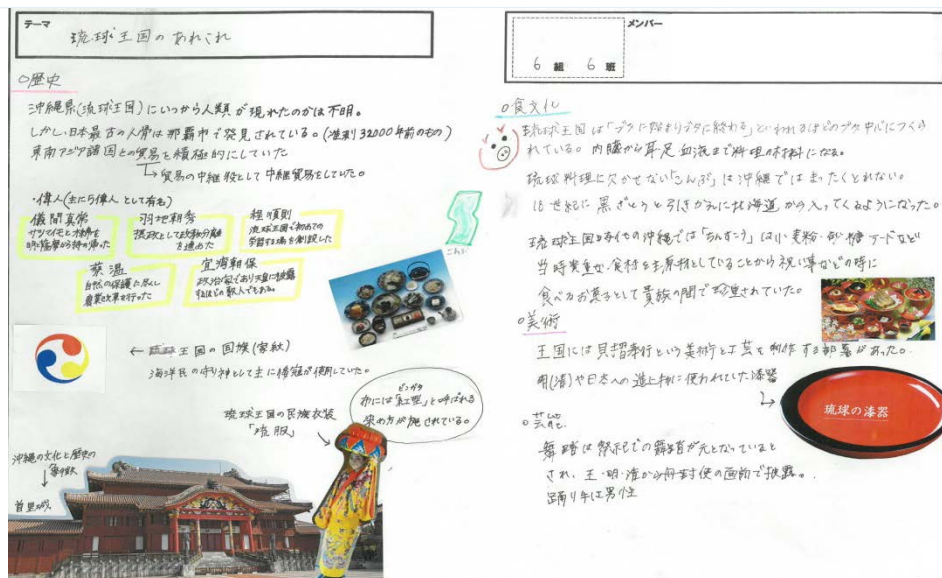 テーマ
琉球王国のあれこれ
○歴史
沖縄県(琉球王国)にいつから人類が現れたのかは不明。
しかし、日本最古の人骨は那覇市で発見されている。(推測32000年前のもの)
東南アジア諸国との貿易を積極的にしていた
→貿易の中継役として中継貿易をしていた。
・偉人(主に5偉人として有名)
儀間真常
サツマイモと木綿を
羽地朝秀
摂政として政教分離
を進めた
程順則
琉球王国で初めての
学習する場を創設した
蔡温
自然の保護に尽くし
農業改革を行った
宜湾朝保
政治家であり天皇に披露
するほどの歌人でもある。
こんぶ
← 琉球王国の国旗(家紋)
海洋民の守り神として主に船が使用していた。
琉球王国の民族衣装
「琉服」
ビンガタ
布には「紅型」と呼ばれる
染め方が施されている。
沖縄の文化と歴史の
象徴
首里城
メンバー
6 組 6 班
○食文化
琉球王国は「ブタに始まりブタに終わる」といわれるほどのブタ中心につくら
れている。内臓から耳足血液まで料理の材料になる。
琉球料理に欠かせない「こんぶ」は沖縄ではまったくとれない。
18世紀に黒ざとうと引きかえに北海道から入ってくるようになった。
琉球王国時代の沖縄では「ちんすこう」は小麦粉・砂糖・ラードなど
当時貴重な食材を主原材としていることから祝い事などの時に
食べるお菓子として貴族の間で珍重されていた。
○美術
王国には貝摺奉行という美術と工芸を制作する部署があった。
明(清)や日本への進上物に使われていた漆器
琉球の漆器
○芸能
舞踊は祭祀での舞踊が元となっていると
され、王・明・清から冊封使の面前で披露。
踊り手は男性